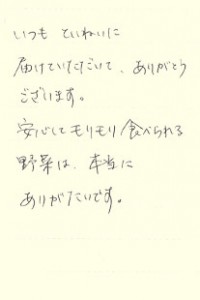 いつも ていねいに
届けていただいて、ありがとう
ございます。
安心してモリモリ食べられる
野菜は、本当に
ありがたいです。